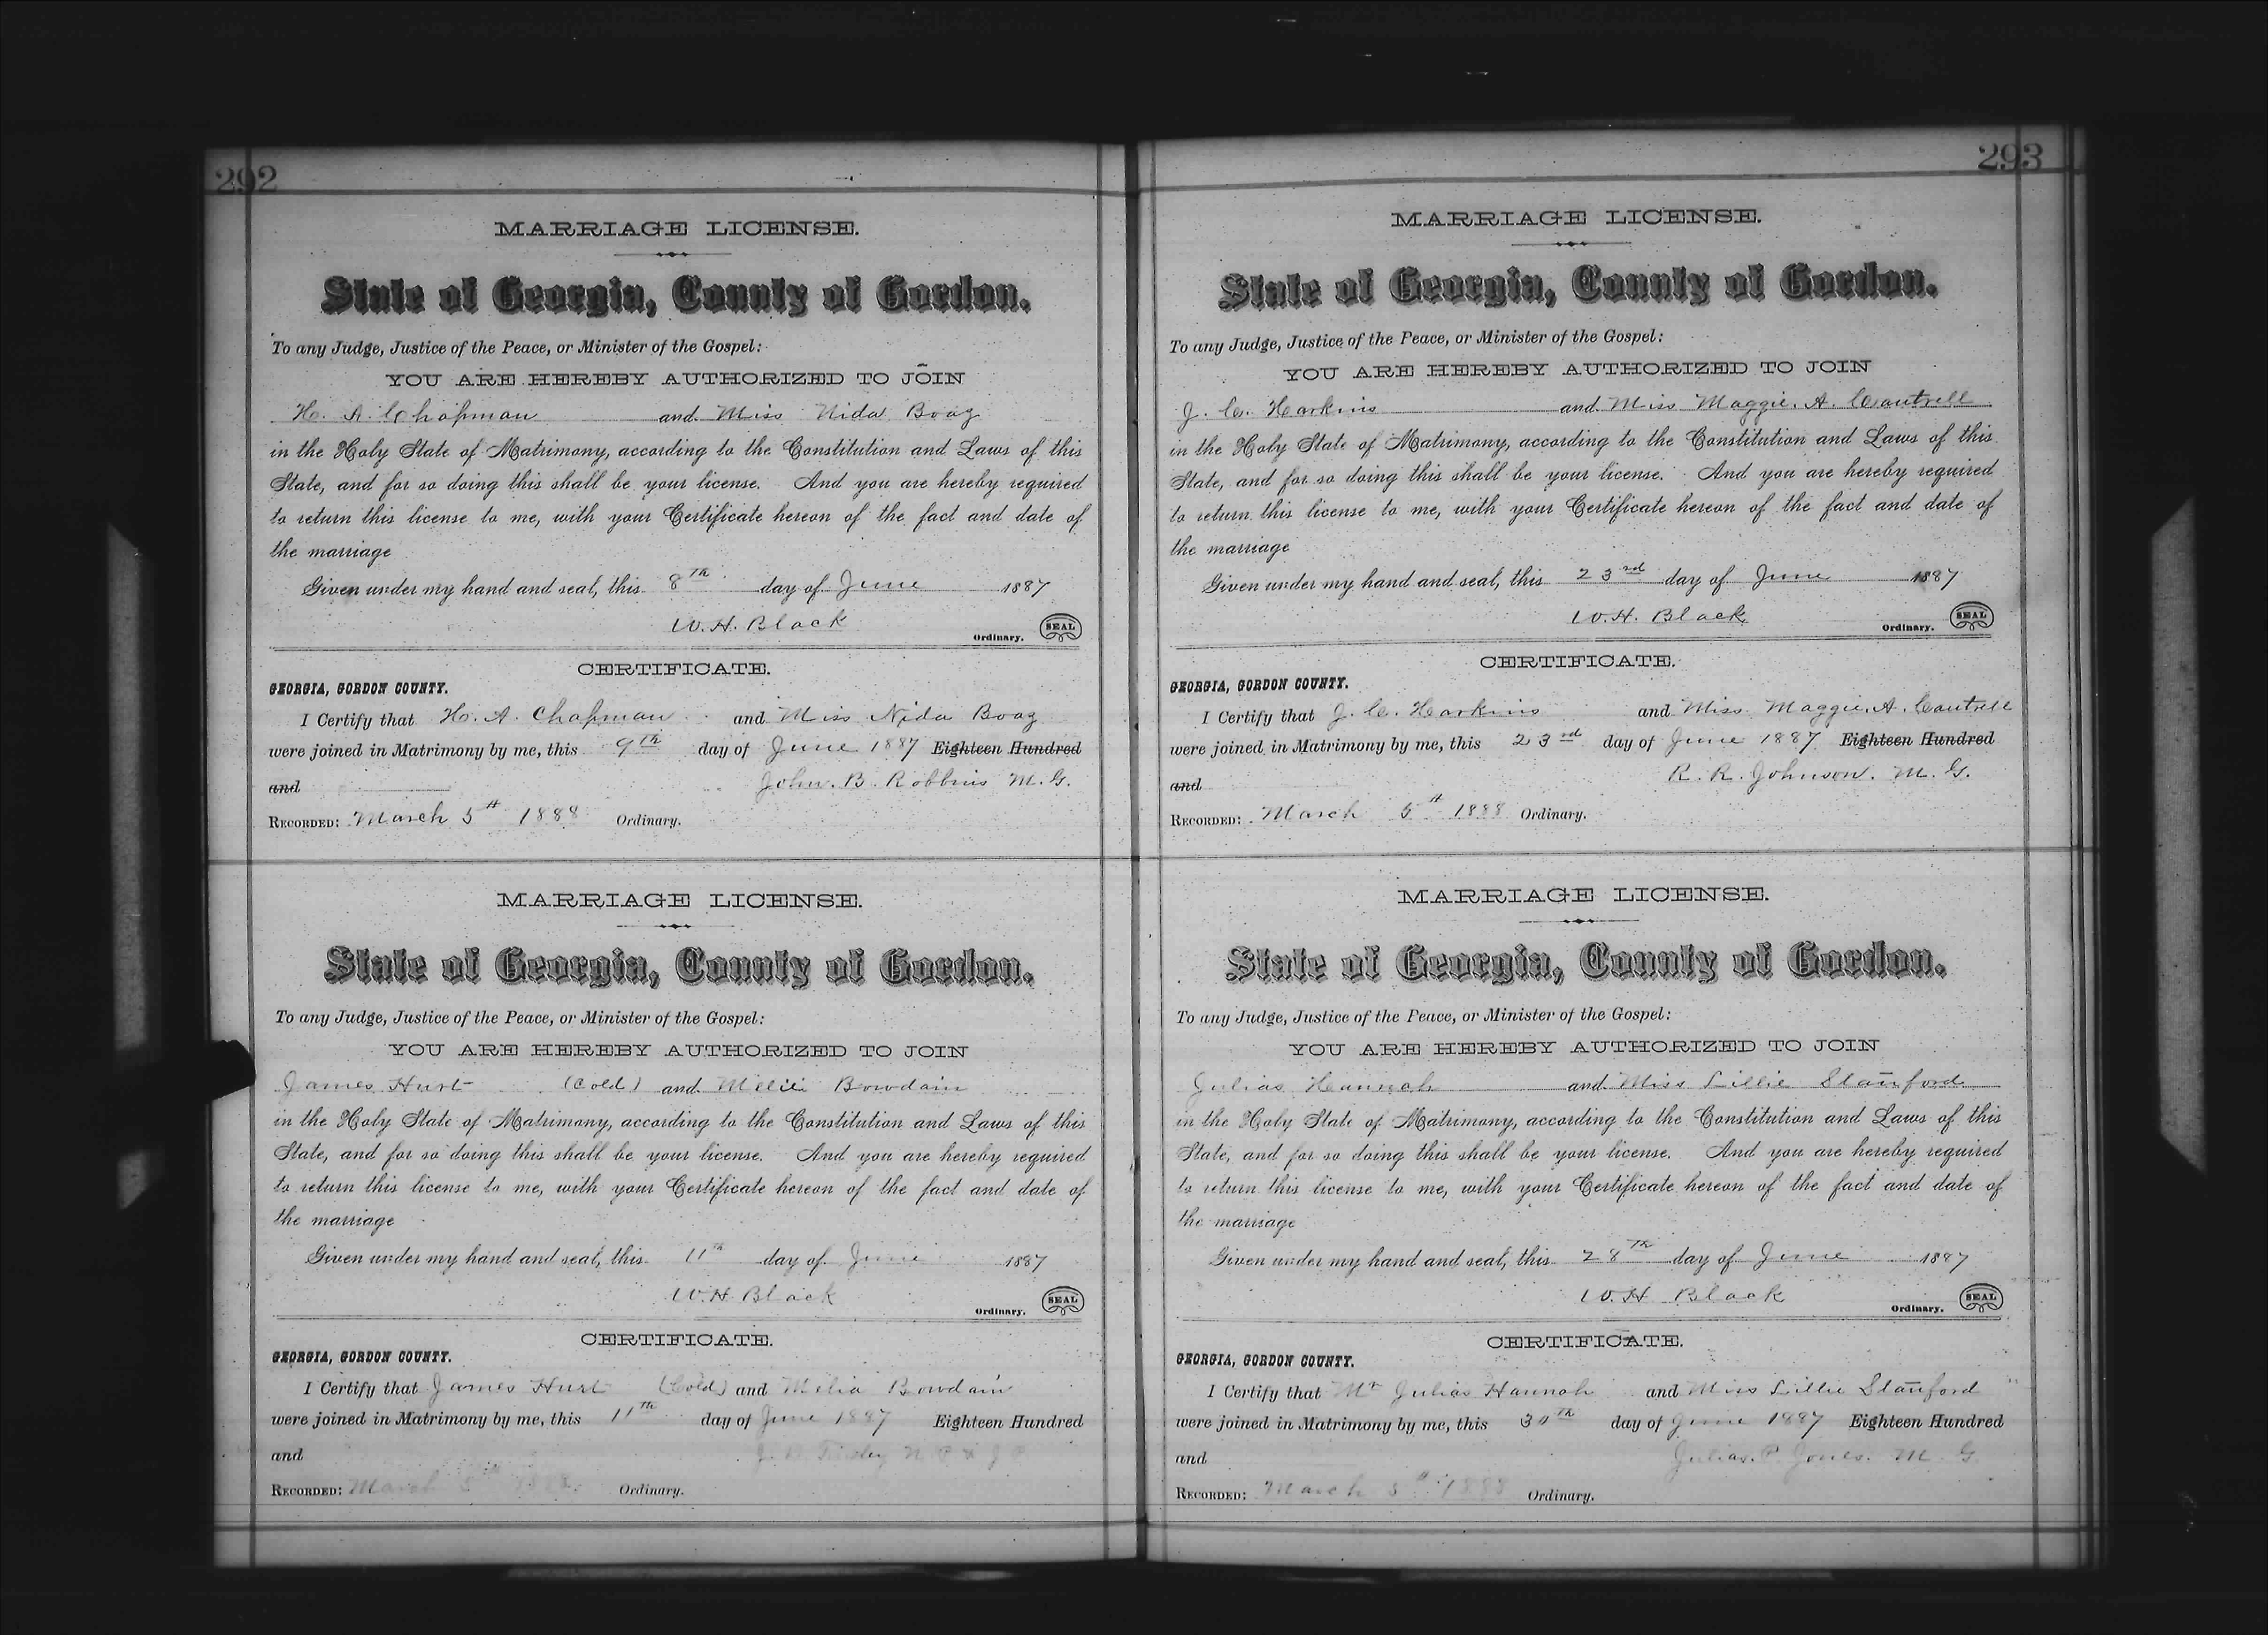 292
MARRIAGE LICENSE.
State of Georgia, County of Gordon.
To any Judge, Justice of the Peace, or Minister of the Gospel:
YOU ARE HEREBY AUTHORIZED TO JOIN
H. A. Chapman and Miss Nida Boaz
in the Holy State of Matrimony, according to the Constitution and Laws of this
State, and for so doing this shall be your license. And you are hereby required
to return this license to me, with your Certificate hereon of the fact and date of
the marriage
Given under my hand and seal, this 8th day of June 1887
W. H. Black
Ordinary. SEAL
CERTIFICATE.
GEORGIA, GORDON COUNTY.
I Certify that H. A. Chapman and Miss Nida Boaz
were joined in Matrimony by me, this 9th day of June 1887 Eighteen Hundred
and John. B. Robbins M. G.
RECORDED: March 5th 1888 Ordinary.
MARRIAGE LICENSE.
State of Georgia, County of Gordon.
To any Judge, Justice of the Peace, or Minister of the Gospel:
YOU ARE HEREBY AUTHORIZED TO JOIN
James Hurt (Cold) and Bowdain
in the Holy State of Matrimony, according to the Constitution and Laws of this
State, and for so doing this shall be your license. And you are hereby required
to return this license to me, with your Certificate hereon of the fact and date of
the marriage
Given under my hand and seal, this 11th day of June 1887
W. H. Black
Ordinary. SEAL
CERTIFICATE.
GEORGIA, GORDON COUNTY.
I Certify that James Hurt (Cold) and Melia Bowdain
were joined in Matrimony by me, this 11th day of June 1887 Eighteen Hundred
and N P & J P
RECORDED: March 5th 1888. Ordinary.
293
MARRIAGE LICENSE.
State of Georgia, County of Gordon.
To any Judge, Justice of the Peace, or Minister of the Gospel:
YOU ARE HEREBY AUTHORIZED TO JOIN
J. C. Harkins and Miss Maggie. A. Cantrell
in the Holy State of Matrimony, according to the Constitution and Laws of this
State, and for so doing this shall be your license. And you are hereby required
to return this license to me, with your Certificate hereon of the fact and date of
the marriage
Given under my hand and seal, this 23rd day of June 1887
W. H. Black
Ordinary. SEAL
CERTIFICATE.
GEORGIA, GORDON COUNTY.
I Certify that J. C. Harkins and Miss Maggie. A. Cantrell
were joined in Matrimony by me, this 23rd day of June 1887 Eighteen Hundred
and R. R. Johnson. M. G.
RECORDED: March 5th 1888 Ordinary.
MARRIAGE LICENSE.
State of Georgia, County of Gordon.
To any Judge, Justice of the Peace, or Minister of the Gospel:
YOU ARE HEREBY AUTHORIZED TO JOIN
Julias Hannah and Miss Lillie Stanford
in the Holy State of Matrimony, according to the Constitution and Laws of this
State, and for so doing this shall be your license. And you are hereby required
to return this license to me, with your Certificate hereon of the fact and date of
the marriage
Given under my hand and seal, this 28th day of June 1887
W. H Black
Ordinary. SEAL
CERTIFICATE.
GEORGIA, GORDON COUNTY.
I Certify that Mr Julias Hannah and Miss Lillie Stanford
were joined in Matrimony by me, this 30th day of June 1887 Eighteen Hundred
and Julias. P. Jones. M G.
RECORDED: March 5th 1888 Ordinary.